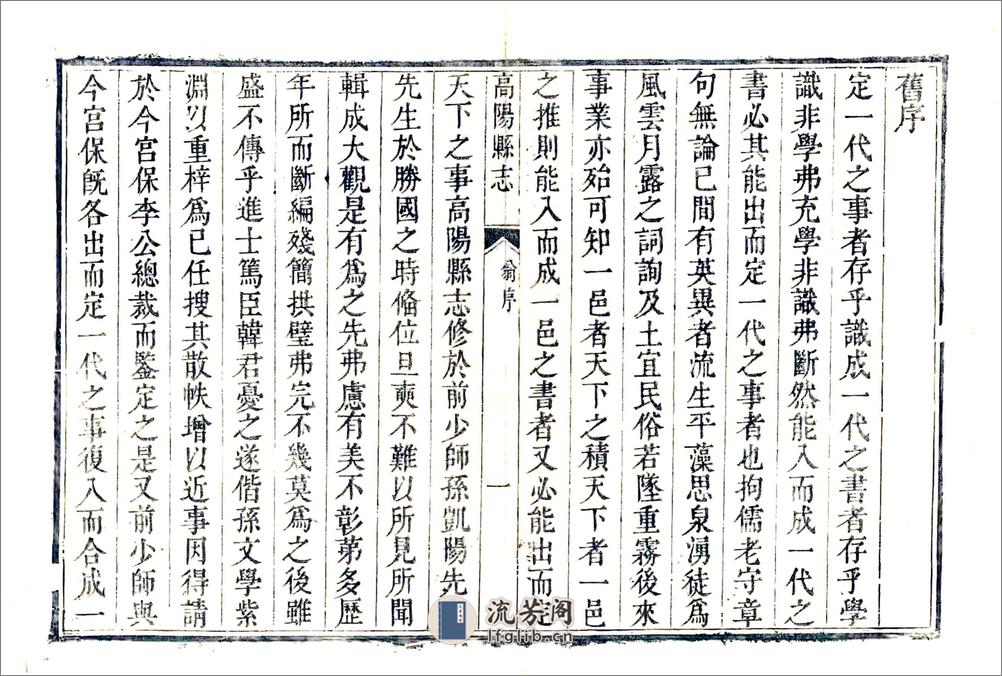 舊序
定一代之事者存乎識成一代之書者存乎學
識非學弗充學非識弗斷然能入而成一代之
書必其能出而定一代之事者也拘儒老守章
句無論已間有英異者流生平藻思泉湧徒爲
風雲月露之詞詢及土宜民俗若墜重霧後來
事業亦殆可知一邑者天下之積天下者一邑
之推則能入而成一邑之書者又必能出而定
高陽縣志
翁序
一
天下之事高陽縣志修於前少師孫凱陽先
先生於勝國之時偹位旦奭不難以所見所聞
輯成大觀是有爲之先弗慮有美不彰第多歷
年所而斷編殘簡拱璧弗完不幾莫爲之後雖
盛不傳乎進士篤臣韓君憂之遂偕孫文學紫
淵以重梓爲已任搜其散帙增以近事因得請
於今宮保李公總裁而鑒定之是又前少師與
今宮保旣各出而定一代之事復入而合成一
流芳阁
lfglib.cn